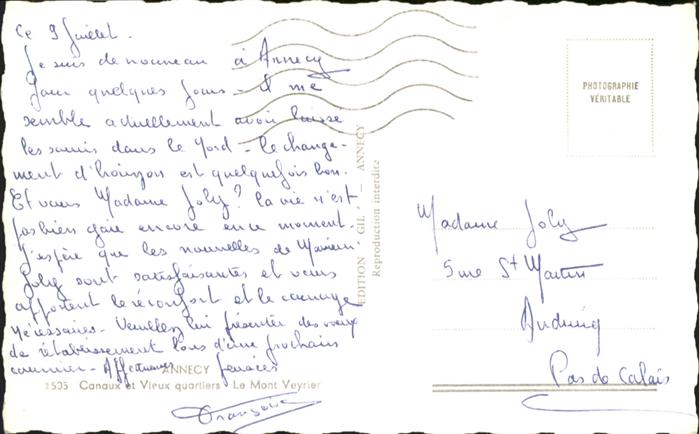 Ce 9 Juillet.
Je suis de nouveau à Annecy
pour quelques jours - Il me
semble actuellement avoir laissé
les soucis dans le Nord - le change-
ment d'horizon est quelquefois bon.
Et vous Madame Joly? la vie n'est
pas bien gaie encore en ce moment.
J'espère que les nouvelles de Monsieur
Joly sont satisfaisantes et vous
apportent le réconfort et le courage
nécessaires - Veuillez lui présenter des voeux
de rétablissement lors d'une prochain
courrier - Affectueuses pensées
Françoise
ANNECY
1535 Canaux et Vieux quartiers - Le Mont Veyrier
EDITION GIL, - ANNECY
Reproduction interdite
PHOTOGRAPHIE
VÉRITABLE
Madame Joly
5 rue St Martin
Pas de Calais